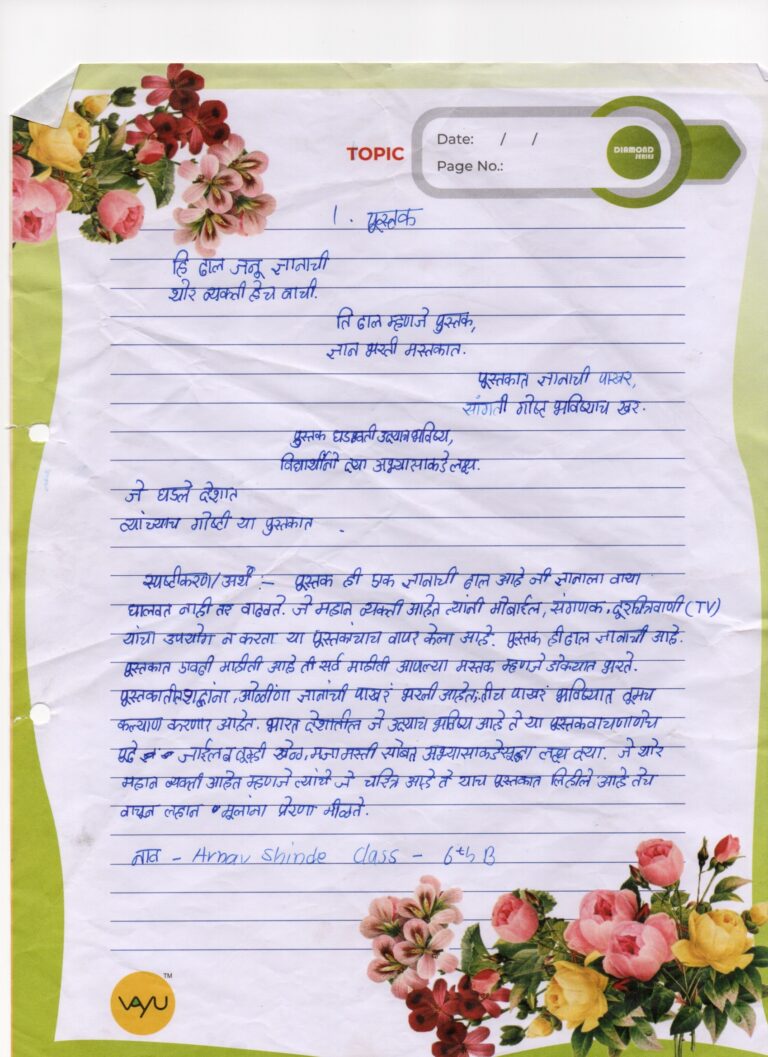 TOPIC
Date: / /
Page No.:
DIAMOND SERIES
1. पूस्तक
हि ढाल जनू ज्ञानाची
थोर व्यक्ती हेच वाची.
ति ढाल म्हणजे पुस्तक,
ज्ञान भरती मस्तकात.
पूस्तकात ज्ञानाची पाखर,
सांगती गोष्ट भविष्याच खर.
पुस्तक घडवती उद्याच भविष्य,
विद्यार्थीनो द्या अभ्यासाकडे लक्ष.
जे घडले देशात
त्यांच्याच गोष्टी या पुस्तकात
स्पष्टीकरण/अर्थ :- पूस्तक ही एक ज्ञानाची ढाल आहे जी ज्ञानाला वाया
घालवत नाही तर वाढवते. जे महान व्यक्ती आहेत त्यांनी मोबाईल, संगणक, दूरचित्रवाणी (TV)
यांचा उपयोग न करता या पूस्तकांचाच वापर केला आहे. पूस्तक ही ढाल ज्ञानाची आहे.
पूस्तकात माहीती आहे ती सर्व माहीती आपल्या मस्तक म्हणजे डोक्यात भरते.
पूस्तकातील शब्दांना, ओळींना ज्ञानाची पाखरं भरली आहेत. तीच पाखरं भविष्यात तूमच
कल्याण करणार आहेत. भारत देशातील जे उद्याच भविष्य आहे ते या पूस्तक वाचणाणेच
पूढे जाईल व तूम्ही खेळ, मजा मस्ती सोबत अभ्यासाकडे सूद्धा लक्ष द्या. जे थोर
महान व्यक्ती आहेत म्हणजे त्यांचे जे चरित्र आहे ते याच पूस्तकात लिहीले आहे तेच
वाचून लहान मूलांना प्रेरणा मीळते.
नाव - Arnav Shinde Class - 6th B
VAYU TM